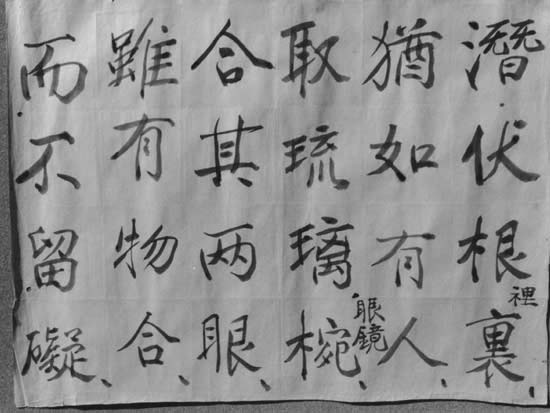 潛伏根裏、
裡
猶如有人、
取琉璃椀、
眼鏡
合其两眼、
雖有物合、
而不留礙、